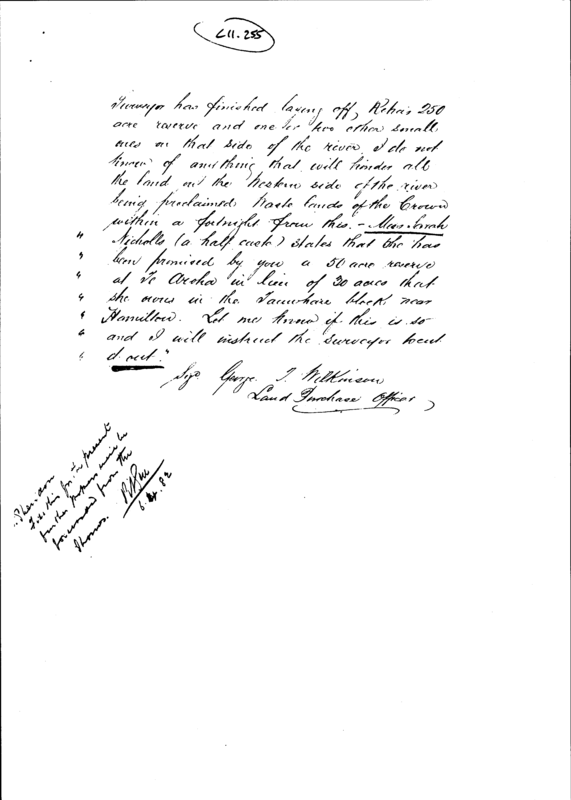 L11. 255
Surveyor has finished laying off, Reha's 250
acre reserve and one or two other small
ones on that side of the river. I do not
know of anything that will hinder all
the land on the Western side of the river
being proclaimed Waste lands of the Crown
within a fortnight from this. - Mary Sarah
" Nicholls (a half caste) states that she has
" been promised by you a 50 acre reserve
" at Te Aroha in lieu of 30 acres that
" she owns in the Tauwhare block near
" Hamilton. Let me know if this is so
" and I will instruct the surveyor to cut
" it out."
Sgd George T. Wilkinson
Land Purchase Officer
File this for the present
further papers will be
forwarded from the
Thames.
6.
82